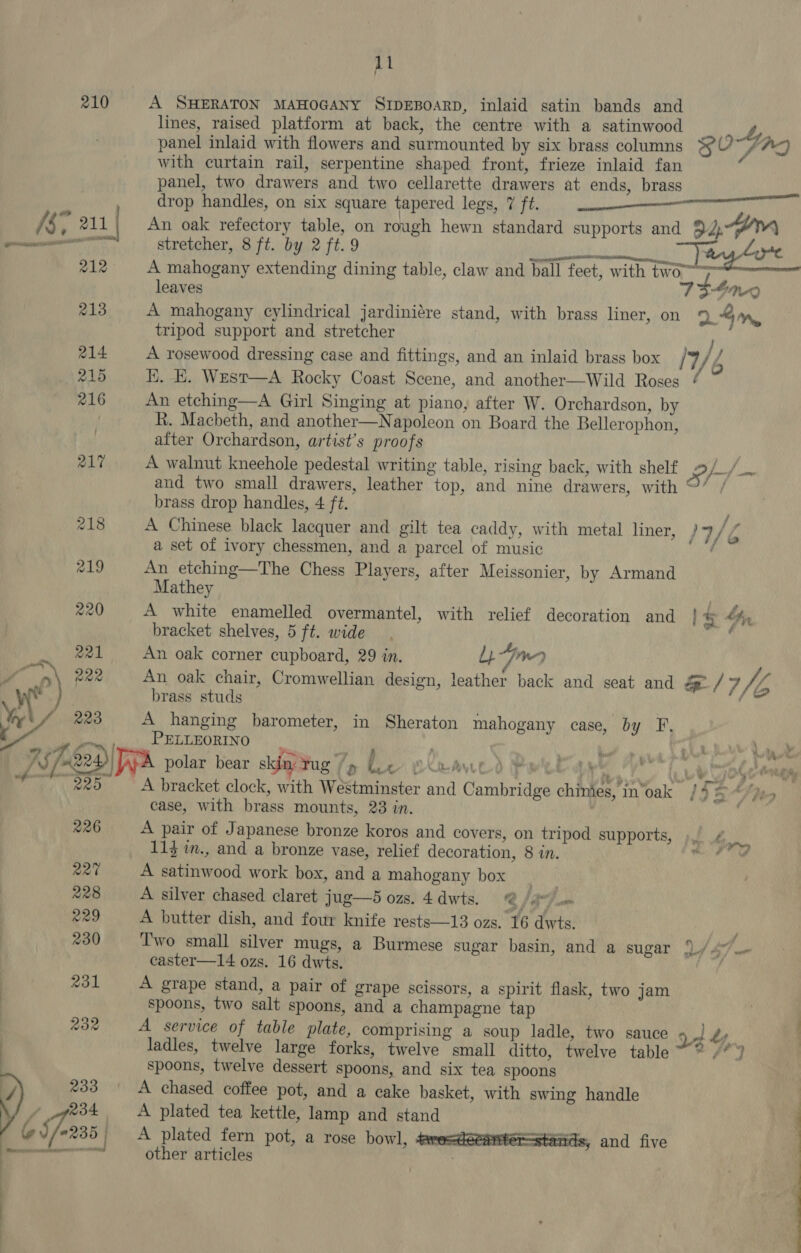 11
210 A SHERATON MAHOGANY SIDEBOARD, inlaid satin bands and
lines, raised platform at back, the centre with a satinwood
panel inlaid with flowers and surmounted by six brass columns
with curtain rail, serpentine shaped front, frieze inlaid fan
panel, two drawers and two cellarette drawers at ends, brass
drop handles, on six square tapered legs, 7 ft.
211 An oak refectory table, on rough hewn standard supports and
stretcher, 8 ft. by 2 ft. 9
212 A mahogany extending dining table, claw and ball feet, with two
leaves
213 A mahogany cylindrical jardinière stand, with brass liner, on
tripod support and stretcher
214 A rosewood dressing case and fittings, and an inlaid brass box 17/6
215 E. E. WEST—A Rocky Coast Scene, and another—Wild Roses
216 An etching—A Girl Singing at piano, after W. Orchardson, by
R. Macbeth, and another—Napoleon on Board the Bellerophon,
after Orchardson, artist's proofs
217 A walnut kneehole pedestal writing table, rising back, with shelf
and two small drawers, leather top, and nine drawers, with
brass drop handles, 4 ft.
218 A Chinese black lacquer and gilt tea caddy, with metal liner, 17/6
a set of ivory chessmen, and a parcel of music
219 An etching—The Chess Players, after Meissonier, by Armand
Mathey
220 A white enamelled overmantel, with relief decoration and
bracket shelves, 5 ft. wide
221 An oak corner cupboard, 29 in.
222 An oak chair, Cromwellian design, leather back and seat and
brass studs
223 A hanging barometer, in Sheraton mahogany case, by F.
PELLEORINO
224 A polar bear skin rug
225 A bracket clock, with Westminster and Cambridge chimes, in oak
case, with brass mounts, 23 in.
226 A pair of Japanese bronze koros and covers, on tripod supports,
11½ in., and a bronze vase, relief decoration, 8 in.
227 A satinwood work box, and a mahogany box
228 A silver chased claret jug—5 ozs. 4 dwts.
229 A butter dish, and four knife rests—13 ozs. 16 dwts.
230 Two small silver mugs, a Burmese sugar basin, and a sugar
caster—14 ozs. 16 dwts.
231 A grape stand, a pair of grape scissors, a spirit flask, two jam
spoons, two salt spoons, and a champagne tap
232 A service of table plate, comprising a soup ladle, two sauce
ladles, twelve large forks, twelve small ditto, twelve table
spoons, twelve dessert spoons, and six tea spoons
233 A chased coffee pot, and a cake basket, with swing handle
234 A plated tea kettle, lamp and stand
235 A plated fern pot, a rose bowl, two decanter stands, and five
other articles